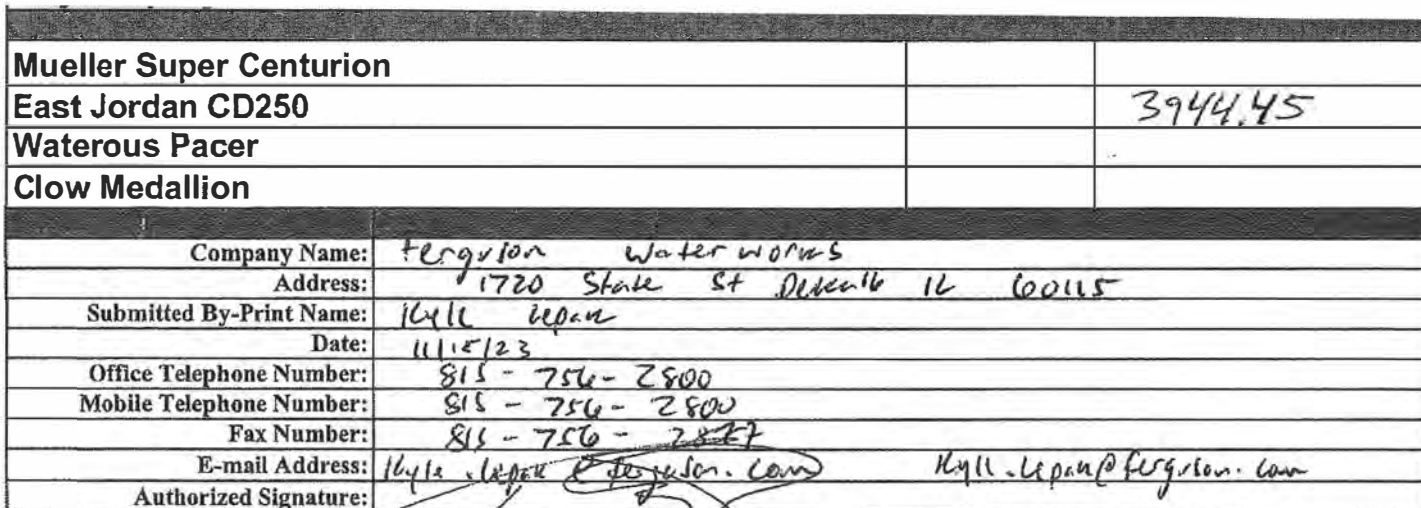 Mueller Super Centurion
East Jordan CD250 3944.45
Waterous Pacer
Clow Medallion
Company Name: Ferguson Waterworks
Address: 1720 State St Dekalb IL 60115
Submitted By-Print Name: Kyle Lepak
Date: 11/15/23
Office Telephone Number: 815-756-2800
Mobile Telephone Number: 815-756-2800
Fax Number: 815-756-2877
E-mail Address: Kyle.Lepak@ferguson.com Kyle.Lepak@ferguson.com
Authorized Signature: